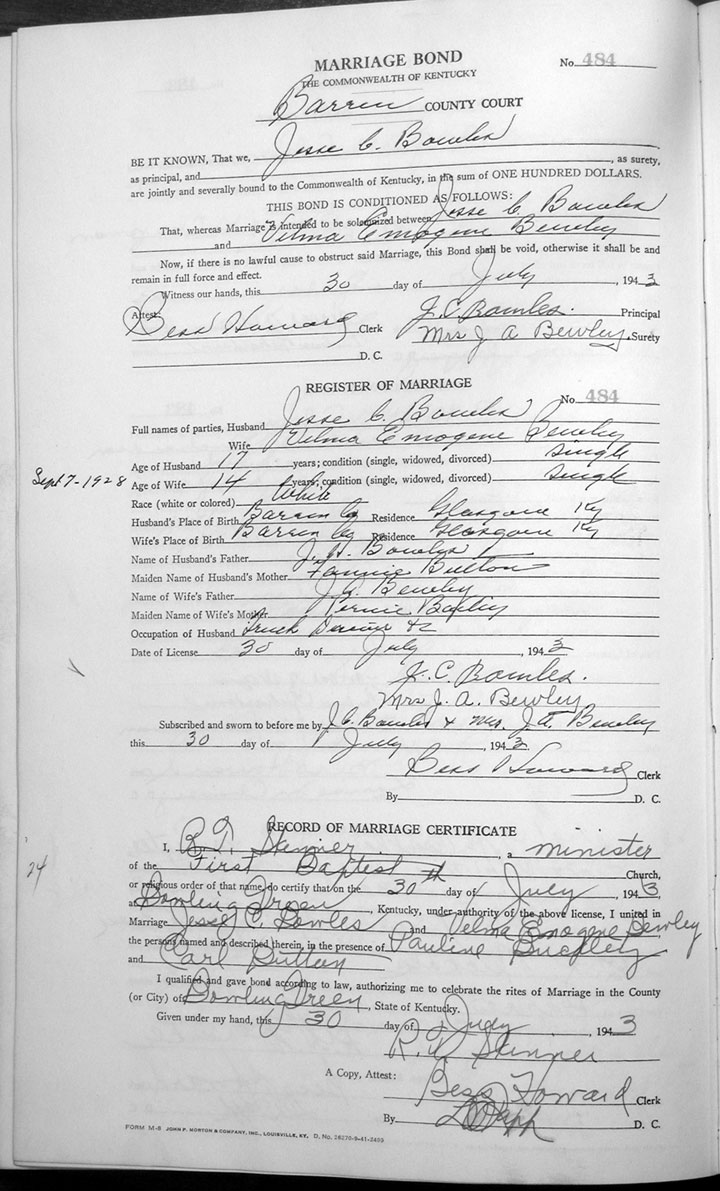 MARRIAGE BOND
No. 484
THE COMMONWEALTH OF KENTUCKY
Barren COUNTY COURT
BE IT KNOWN, That we, Jesse C. Bowles
as principal, and , as surety,
are jointly and severally bound to the Commonwealth of Kentucky, in the sum of ONE HUNDRED DOLLARS.
THIS BOND IS CONDITIONED AS FOLLOWS:
That, whereas Marriage is intended to be solemnized between Jesse C Bowles
and Velma Emogene Bewley
Now, if there is no lawful cause to obstruct said Marriage, this Bond shall be void, otherwise it shall be and
remain in full force and effect.
Witness our hands, this 30 day of July , 1943
Attest: J. C. Bowles. Principal
Bess Howard Clerk Mrs J A Bewley, Surety
D. C.
REGISTER OF MARRIAGE
No. 484
Full names of parties, Husband Jesse C. Bowles
Wife Velma Emogene Bewley
Age of Husband 17 years; condition (single, widowed, divorced) single
Sept 7-1928 Age of Wife 14 years; condition (single, widowed, divorced) single
Race (white or colored) White
Husband's Place of Birth Barren Co Residence Glasgow Ky
Wife's Place of Birth Barren Co Residence Glasgow Ky
Name of Husband's Father J. H. Bowles
Maiden Name of Husband's Mother Fannie Button
Name of Wife's Father J. A. Bewley
Maiden Name of Wife's Mother
Occupation of Husband Truck &c
Date of License 30 day of July , 1943
J. C. Bowles.
Mrs J. A. Bewley
Subscribed and sworn to before me by J. C. Bowles & Mrs. J. A. Bewley
this 30 day of July , 1943.
Bess Howard Clerk
By D. C.
RECORD OF MARRIAGE CERTIFICATE
I, R. T. Skinner , a minister
24
of the First Baptist Church,
or religious order of that name, do certify that on the 30th day of July , 1943,
at Bowling Green , Kentucky, under authority of the above license, I united in
Marriage Jesse C. Bowles and Velma Emogene Bewley
the persons named and described therein, in the presence of Pauline
and Carl Button
I qualified and gave bond according to law, authorizing me to celebrate the rites of Marriage in the County
(or City) of Bowling Green , State of Kentucky.
Given under my hand, this 30 day of July , 1943
R. T. Skinner
A Copy, Attest: Bess Howard Clerk
By D. C.
FORM M-8 JOHN P. MORTON & COMPANY, INC., LOUISVILLE, KY. D. No. 28270-9-41-2493